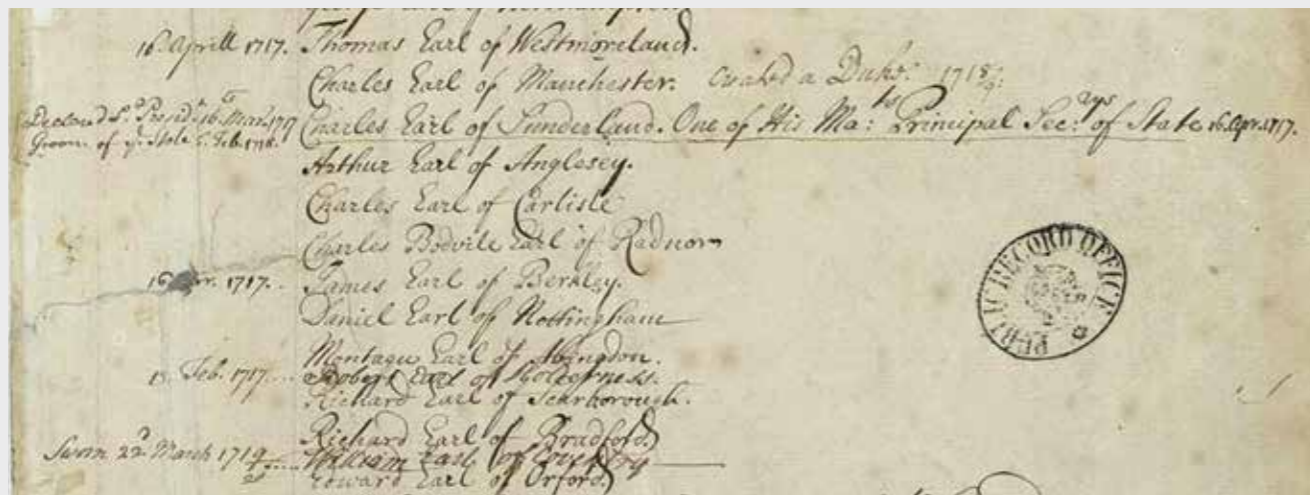 16. Aprill 1717. Thomas Earl of Westmoreland.
Charles Earl of Manchester. Created a Duke. 1718/9.
Declared Ld. Presidt. 16. Mar. 1717
Groom of ye. Stole 6. Feb. 1718.
Charles Earl of Sunderland. One of His Mats: Principal Secrys. of State 16. Apr. 1717.
Arthur Earl of Anglesey.
Charles Earl of Carlisle
Charles Bodvile Earl of Radnor
16 1717. James Earl of Berkley.
Daniel Earl of Nottingham
Montagu Earl of Abingdon.
Feb. 1717. Robert Earl of Holderness.
Richard Earl of Scarborough.
Richard Earl of Bradford
Sworn 22d March 1719/20 William Earl of Coventry
Edward Earl of Orford.
PUBLIC RECORD OFFICE